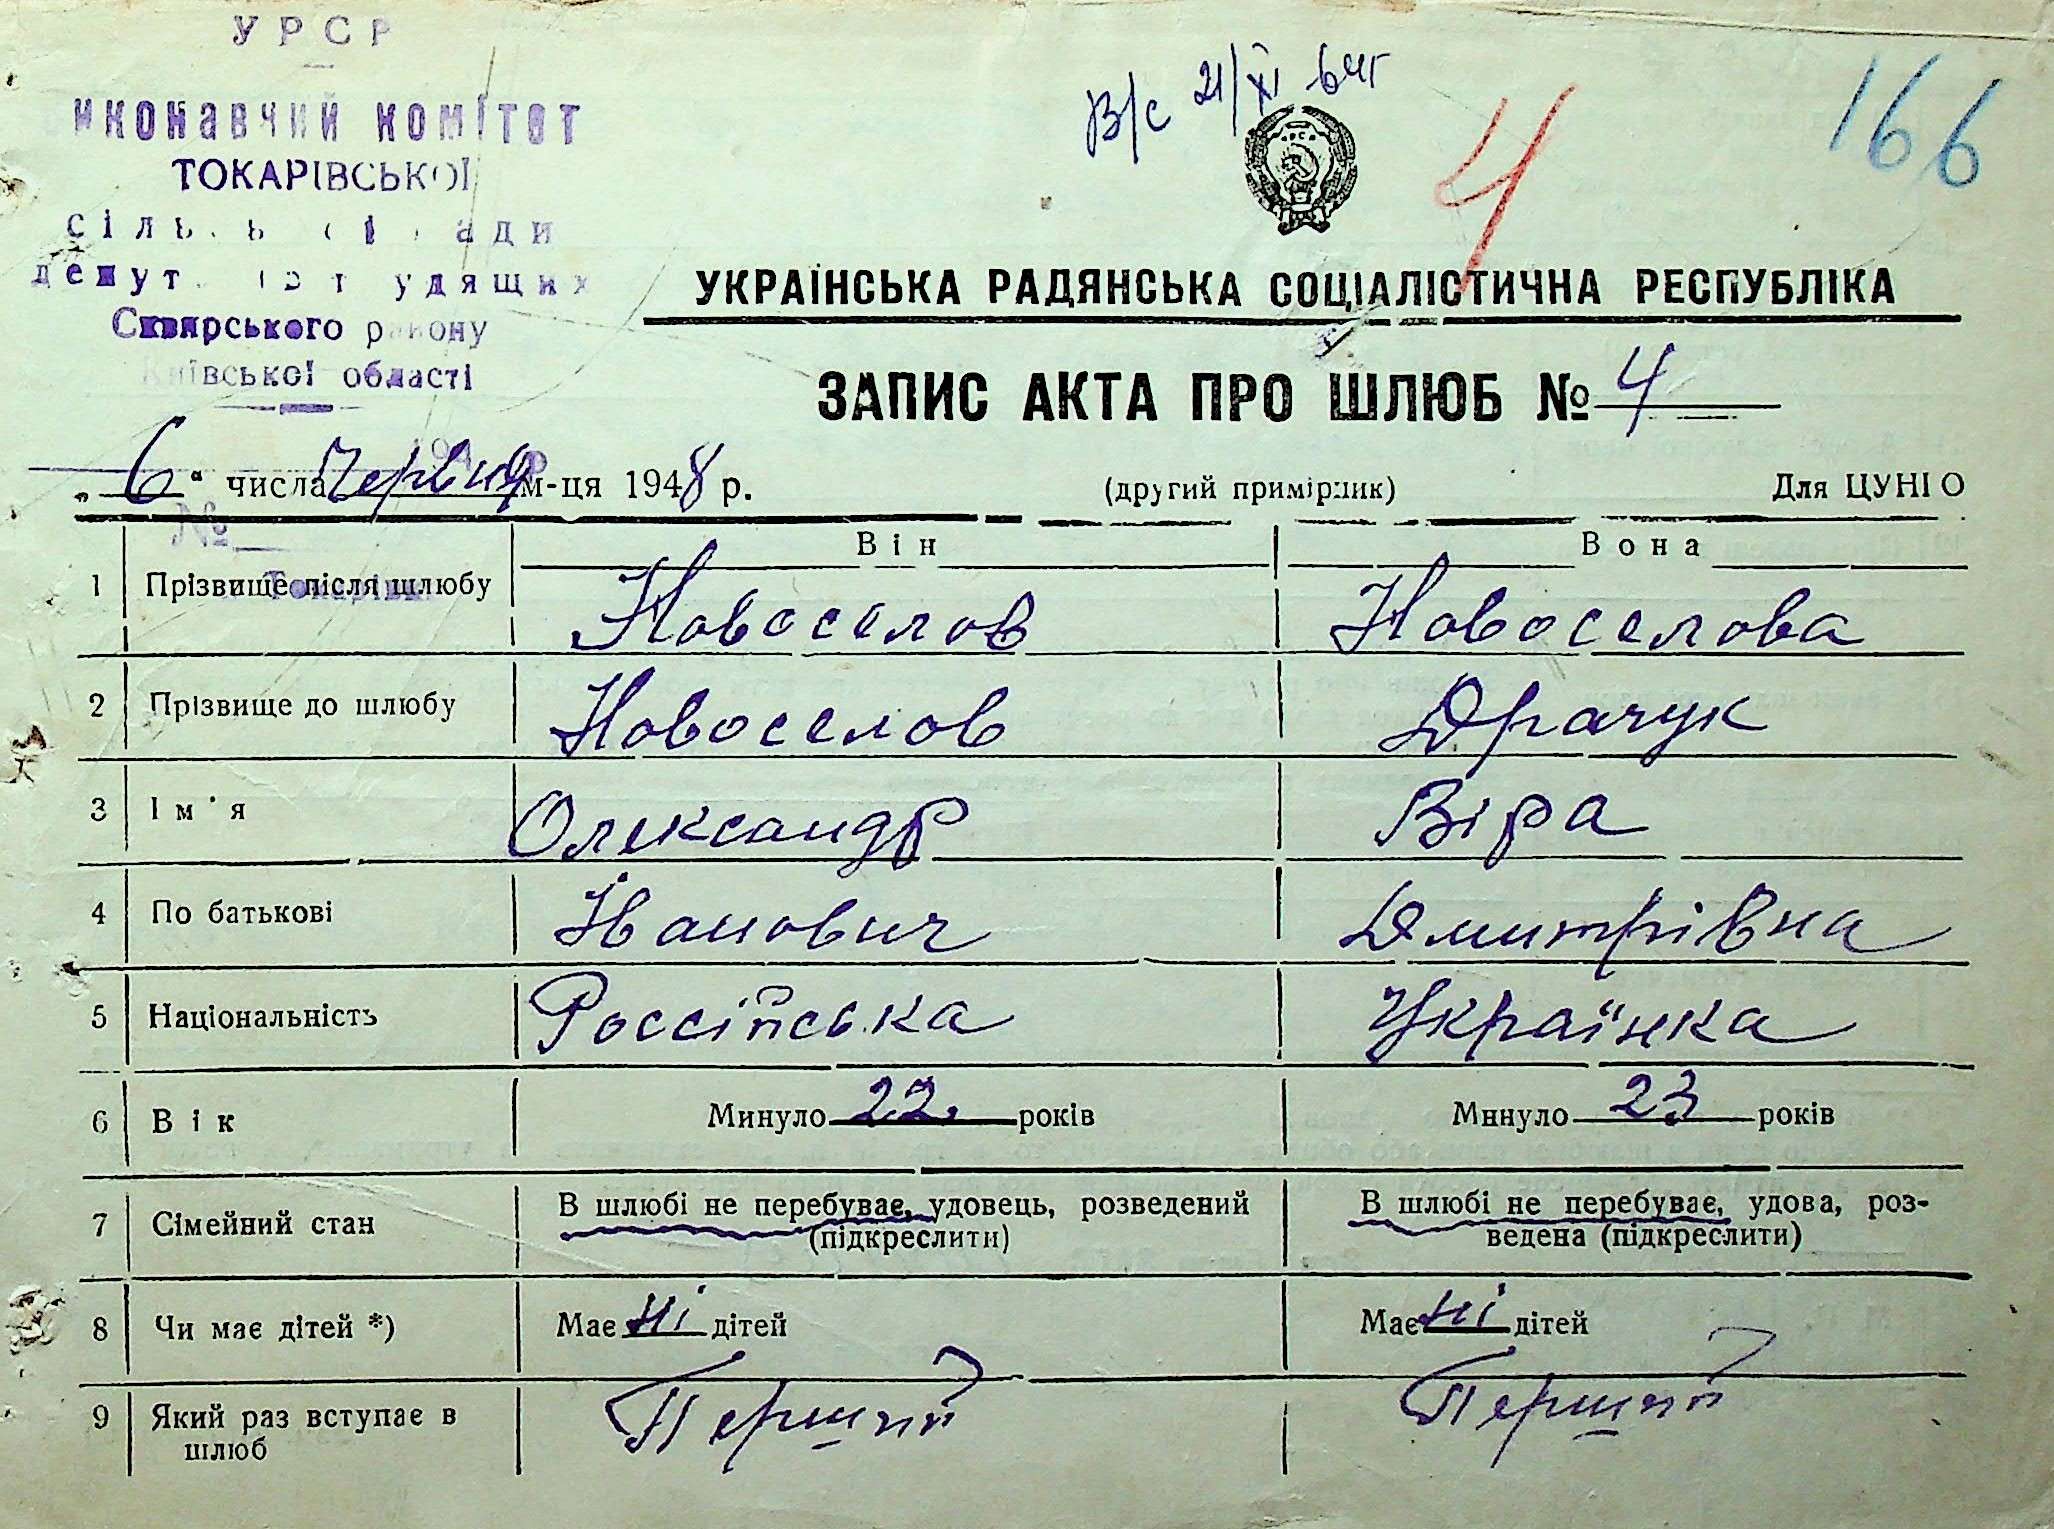 УРСР
иконавчий комітет
ТОКАРІВСЬКОЇ
депут удящих
Сквирського району
Київської області
В/с 21/XI 64г
4
166
УКРАЇНСЬКА РАДЯНСЬКА СОЦІАЛІСТИЧНА РЕСПУБЛІКА
ЗАПИС АКТА ПРО ШЛЮБ № 4
„6“ числа Червня м-ця 1948 р. (другий примірник) Для ЦУНІО
№
Він Вона
1 Прізвище після шлюбу Новоселов Новоселова
2 Прізвище до шлюбу Новоселов Драчук
3 Ім'я Олександр Віра
4 По батькові Іванович Дмитрівна
5 Національність Россійська Українка
6 Вік Минуло 22. років Минуло 23 років
7 Сімейний стан В шлюбі не перебуває, удовець, розведений (підкреслити) В шлюбі не перебуває, удова, роз-
ведена (підкреслити)
8 Чи має дітей *) Має ні дітей Має ні дітей
9 Який раз вступає в Перший Перший
шлюб